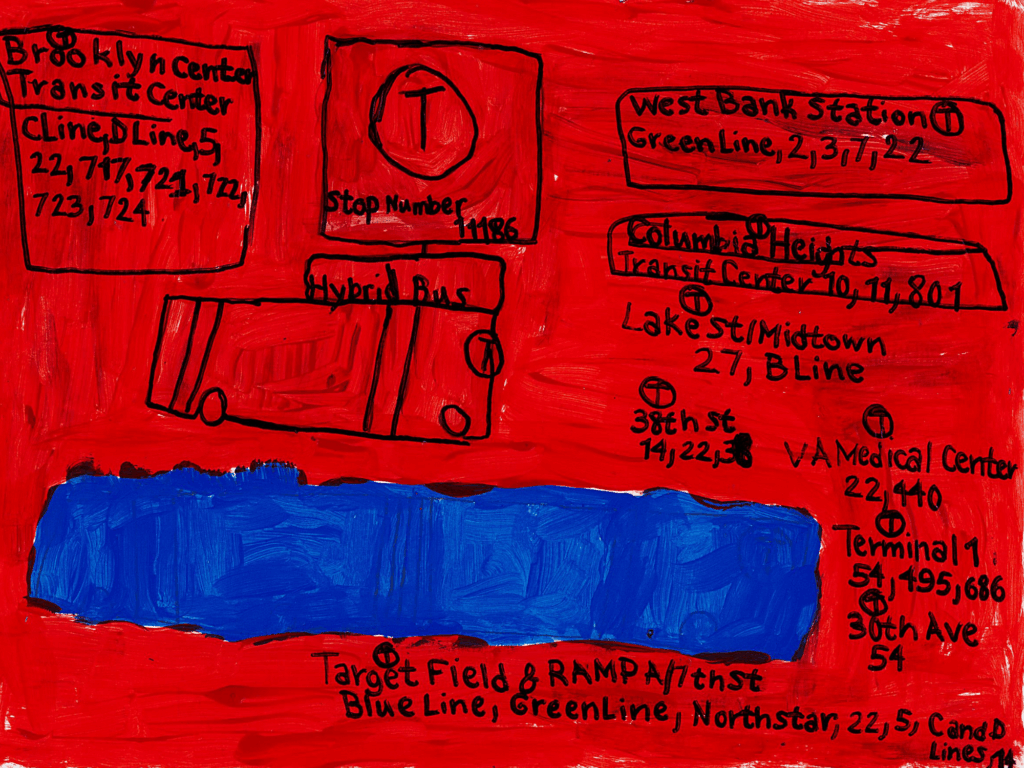 Brooklyn Center
Transit Center
C Line, D Line, 5,
22, 717, 721, 722,
723, 724
T
Stop Number
11186
Hybrid Bus
T
West Bank Station T
Green Line, 2, 3, 7, 22
Columbia Heights
Transit Center 10, 11, 801
T
Lake St/Midtown
27, B Line
T
38th St
14, 22,
T
VA Medical Center
22, 440
T
Terminal 1
54, 495, 686
T
30th Ave
54
T
Target Field & RAMP A/7th st
Blue Line, Green Line, Northstar, 22, 5, C and D
Lines, 14